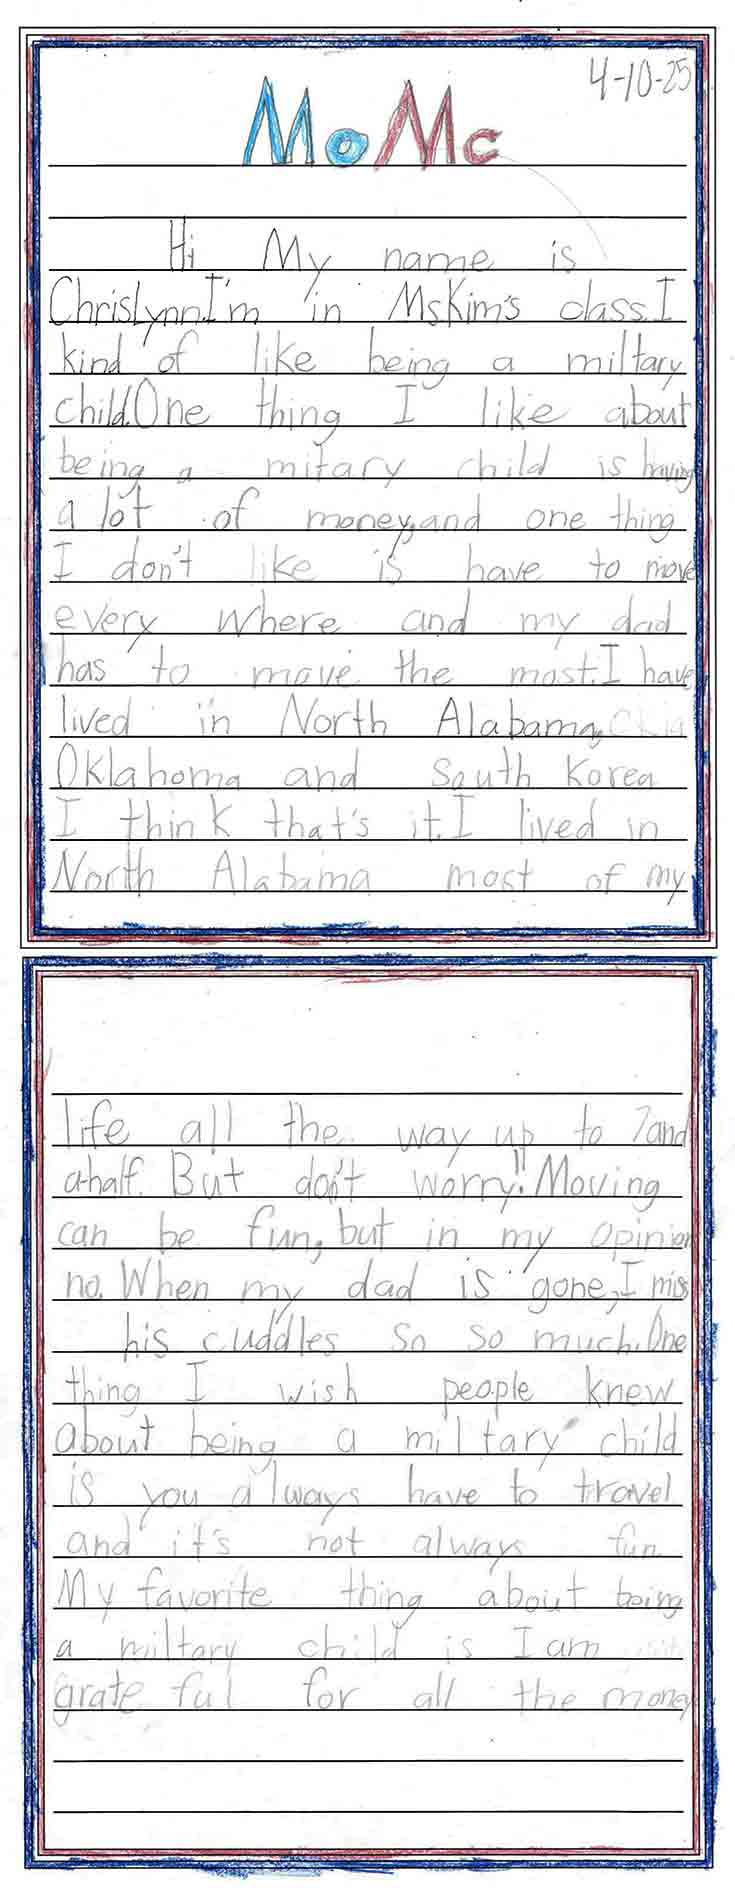 4-10-25
MoMc
Hi My name is
ChrisLynn.I'm in Ms.Kim's class.I
kind of like being a miltary
child.One thing I like about
being a mitary child is having
a lot of money,and one thing
I don't like is have to move
every where and my dad
has to move the most.I have
lived in North Alabama,
Oklahoma and South Korea
I think that's it.I lived in
North Alabama most of my
life all the way up to 7and
a-half. But don't worry!! Moving
can be fun, but in my opinion
no. When my dad is gone, I miss
his cuddles so so much.One
thing I wish people knew
about being a miltary child
is you always have to travel
and it's not always fun.
My favorite thing about being
a miltary child is I am
grate ful for all the money